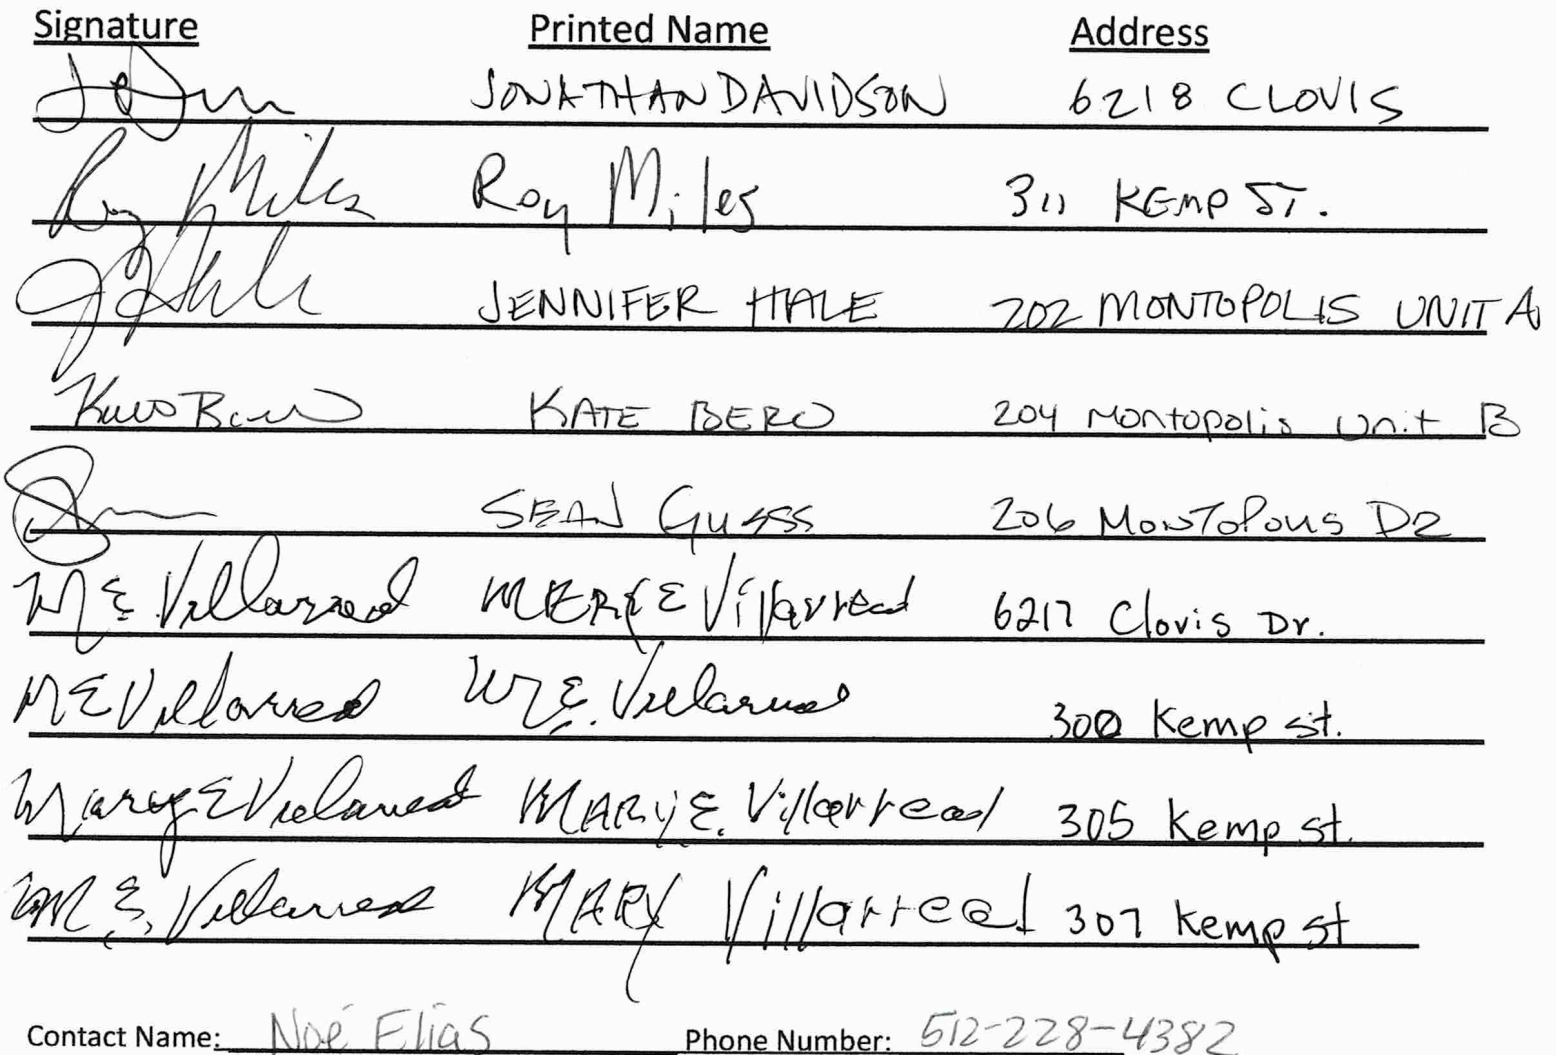 Signature Printed Name Address
JONATHAN DAVIDSON 6218 CLOVIS
Roy Miles Roy Miles 311 KEMP ST.
JENNIFER HALE 202 MONTOPOLIS UNIT A
KATE BERO 204 Montopolis Unit B
SEAN 206 MONTOPOLIS D2
M E Villarreal Villarreal 6217 Clovis Dr.
M E Villarreal M E. Villarreal 300 Kemp st.
Mary E Villarreal MARY E. Villarreal 305 Kemp st.
M E. Villarreal MARY Villarreal 307 Kemp st
Contact Name: Noé Elias Phone Number: 512-228-4382